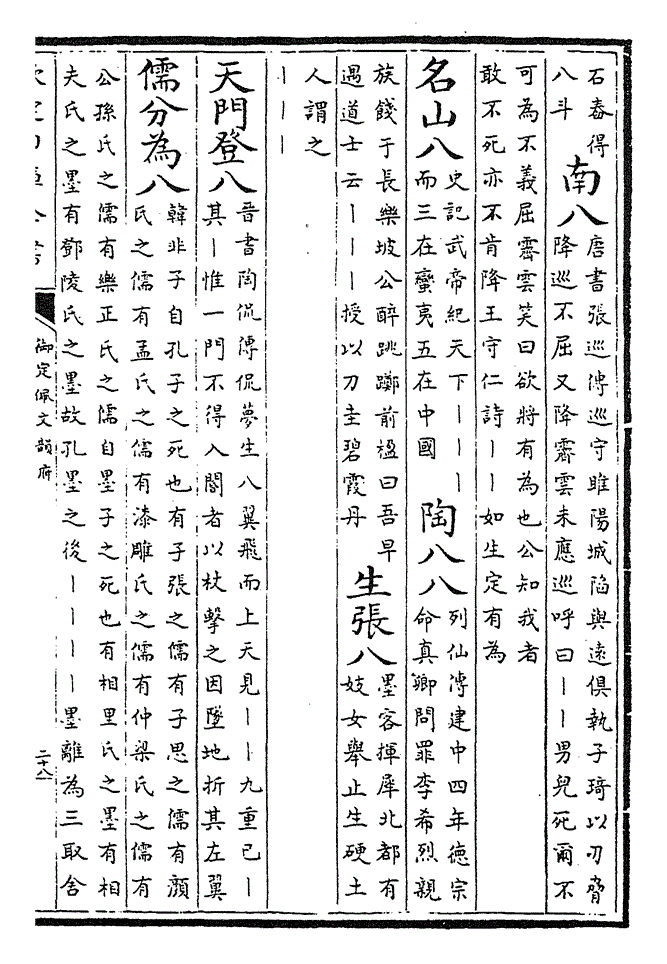 石舂得
八斗
南八
唐書張巡傳巡守睢陽城陷與遠俱執子琦以刃脅
降巡不屈又降霽雲未應巡呼曰丨丨男兒死爾不
可為不義屈霽雲笑曰欲將有為也公知我者
敢不死亦不肯降王守仁詩丨丨如生定有為
名山八
史記武帝紀天下丨丨丨
而三在蠻夷五在中國
陶八八
列仙傳建中四年德宗
命真卿問罪李希烈親
族餞于長樂坡公醉跳躑前楹曰吾早
遇道士云丨丨丨授以刀圭碧霞丹
生張八
墨客揮犀北都有
妓女舉止生硬土
人謂之
丨丨丨
天門登八
晉書陶侃傳侃夢生八翼飛而上天見丨丨九重已丨
其丨惟一門不得入閽者以杖擊之因墜地折其左翼
儒分為八
韓非子自孔子之死也有子張之儒有子思之儒有顏
氏之儒有孟氏之儒有漆雕氏之儒有仲梁氏之儒有
公孫氏之儒有樂正氏之儒自墨子之死也有相里氏之墨有相
夫氏之墨有鄧陵氏之墨故孔墨之後丨丨丨丨墨離為三取舍
御定佩文韻府
二十八